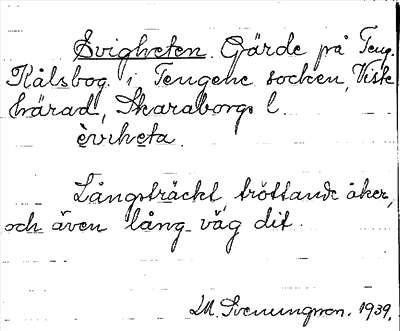 Evigheten. Gärde på Teng.
Kålsbog. i Tengene socken, Viste
härad, Skaraborgs l.
èviheta.
Långsträckt, tröttande åker,
och även lång väg dit.
M. Svenungson. 1939.